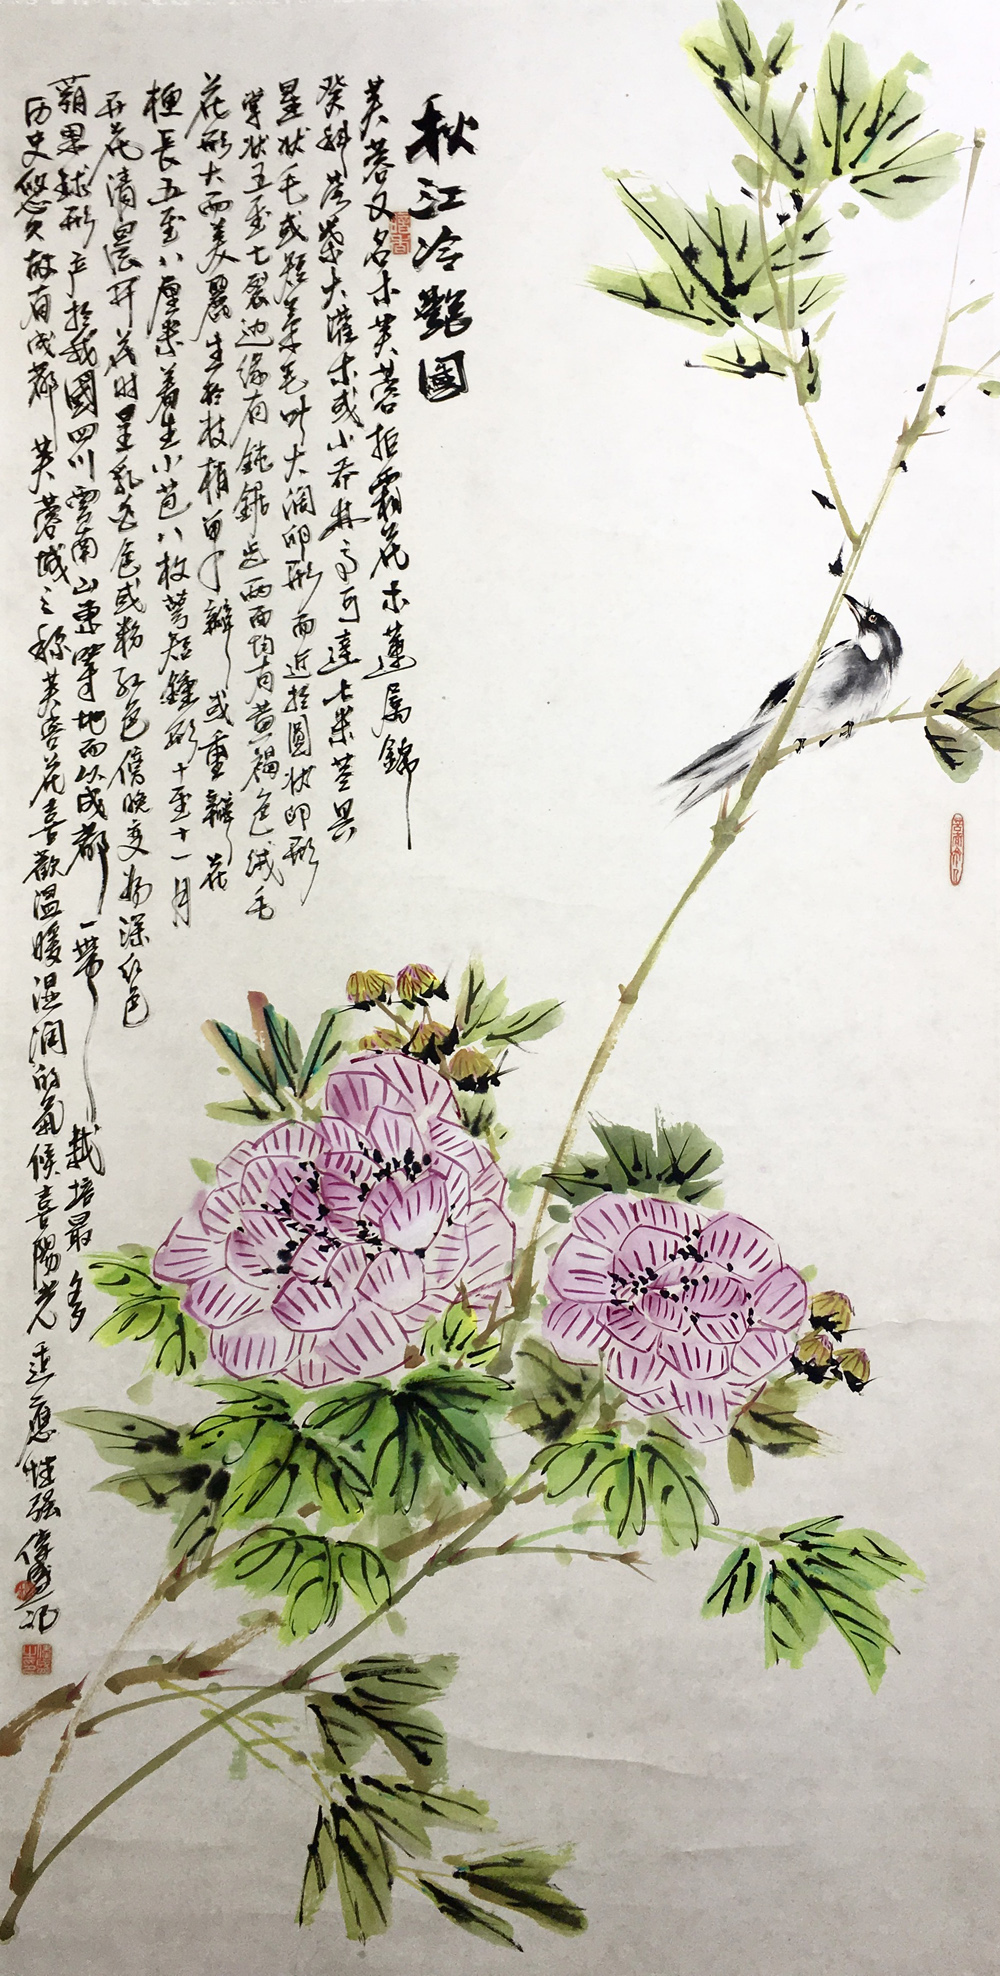 秋江冷艷圖
芙蓉又名木芙蓉拒霜花木蓮属錦
癸科落葉大灌木或小乔林高可達七米茎具
星状毛或短柔毛叶大阔卵形而近於圓状卵形
掌状五至七裂边缘有鈍鋸齿两面均有黄褐色绒毛
花形大而美麗生於枝梢單瓣或重瓣花
梗长五至八厘米着生小苞八枚萼短鐘形十至十一月
开花清晨开花时呈乳白色或粉红色傍晚变为深红色
蒴果球形产於我國四川雲南山東等地而以成都一带栽培最多
历史悠久故有成都芙蓉城之称芙蓉花喜歡温暖湿润的氣候喜陽光适應性强